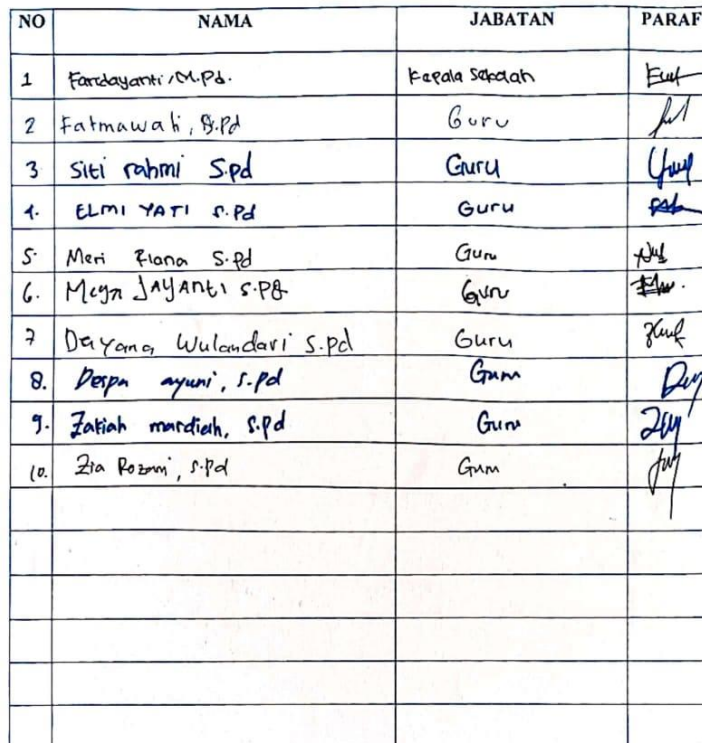 NO NAMA JABATAN PARAF
1 Fardayanti, M.Pd. Kepala Sekolah
2 Fatmawati, S.Pd Guru
3 Siti rahmi S.pd Guru
4. ELMI YATI S.Pd Guru
5. Meri Riana S.Pd Guru
6. Mega JAYANti S.Pd Guru
7 Dayana Wulandari S.pd Guru
8. Despa ayuni, S.pd Guru
9. Zakiah mardiah, S.Pd Guru
10. Zia Rozani, S.Pd Guru